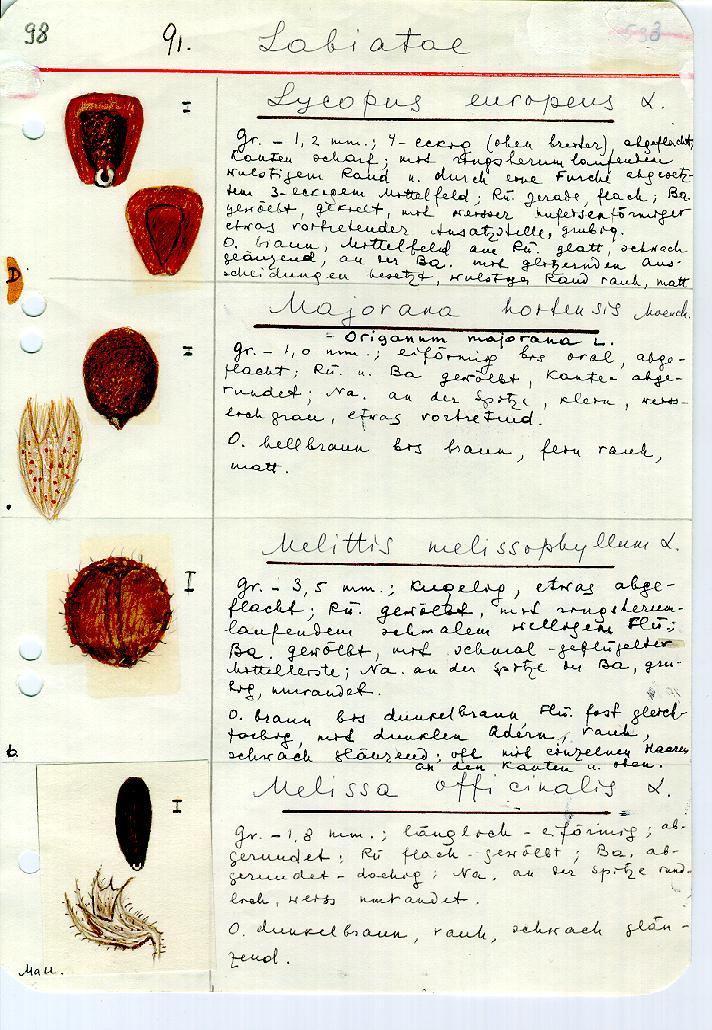 98
91.
Labiatae
593
I
Lycopus europeus L.
Gr. - 1,2 mm.; 4-eckig (oben breiter), abgeflacht,
Kanten scharf; mit ringsherum laufenden
wulstigem Rand u. durch eine Furche abgesetz-
tem 3-eckigem Mittelfeld; Rü. gerade, flach; Ba.
gewölbt, gekielt, mit weisser hufeisenförmiger
etwas vortretender Ansatzstelle, grubig.
O. braun, Mittelfeld am Rü. glatt, schwach
glänzend, an der Ba. mit glitzernden Aus-
scheidungen besetzt, wulstiger Rand rauh, matt
D
I
Majorana hortensis Moench.
= Origanum majorana L.
Gr. - 1,0 mm.; eiförmig bis oval, abge-
flacht; Rü. u. Ba gewölbt, Kanten abge-
rundet; Na. an der Spitze, klein, weiss-
lich grau, etwas vortretend.
O. hellbraun bis braun, fein rauh,
matt.
I
Melittis melissophyllum L.
Gr. - 3,5 mm.; kugelig, etwas abge-
flacht; Rü. gewölbt, mit ringsherum-
laufendem schmalem welligem Flü.;
Ba. gewölbt, mit schmal-geflügelter
Mittelleiste; Na. an der Spitze der Ba, gru-
big, umrandet.
O. braun bis dunkelbraun, Flü. fast gleich-
farbig, mit dunklen Adern, rauh,
schwach glänzend; oft mit einzelnen Haaren
an den Kanten u. oben.
b.
I
Melissa officinalis L.
Gr. - 1,8 mm.; länglich - eiförmig; ab-
gerundet; Rü flach - gewölbt; Ba. ab-
gerundet - dachig; Na. an der Spitze rund-
lich, weiss umrandet.
O. dunkelbraun, rauh, schwach glän-
zend.